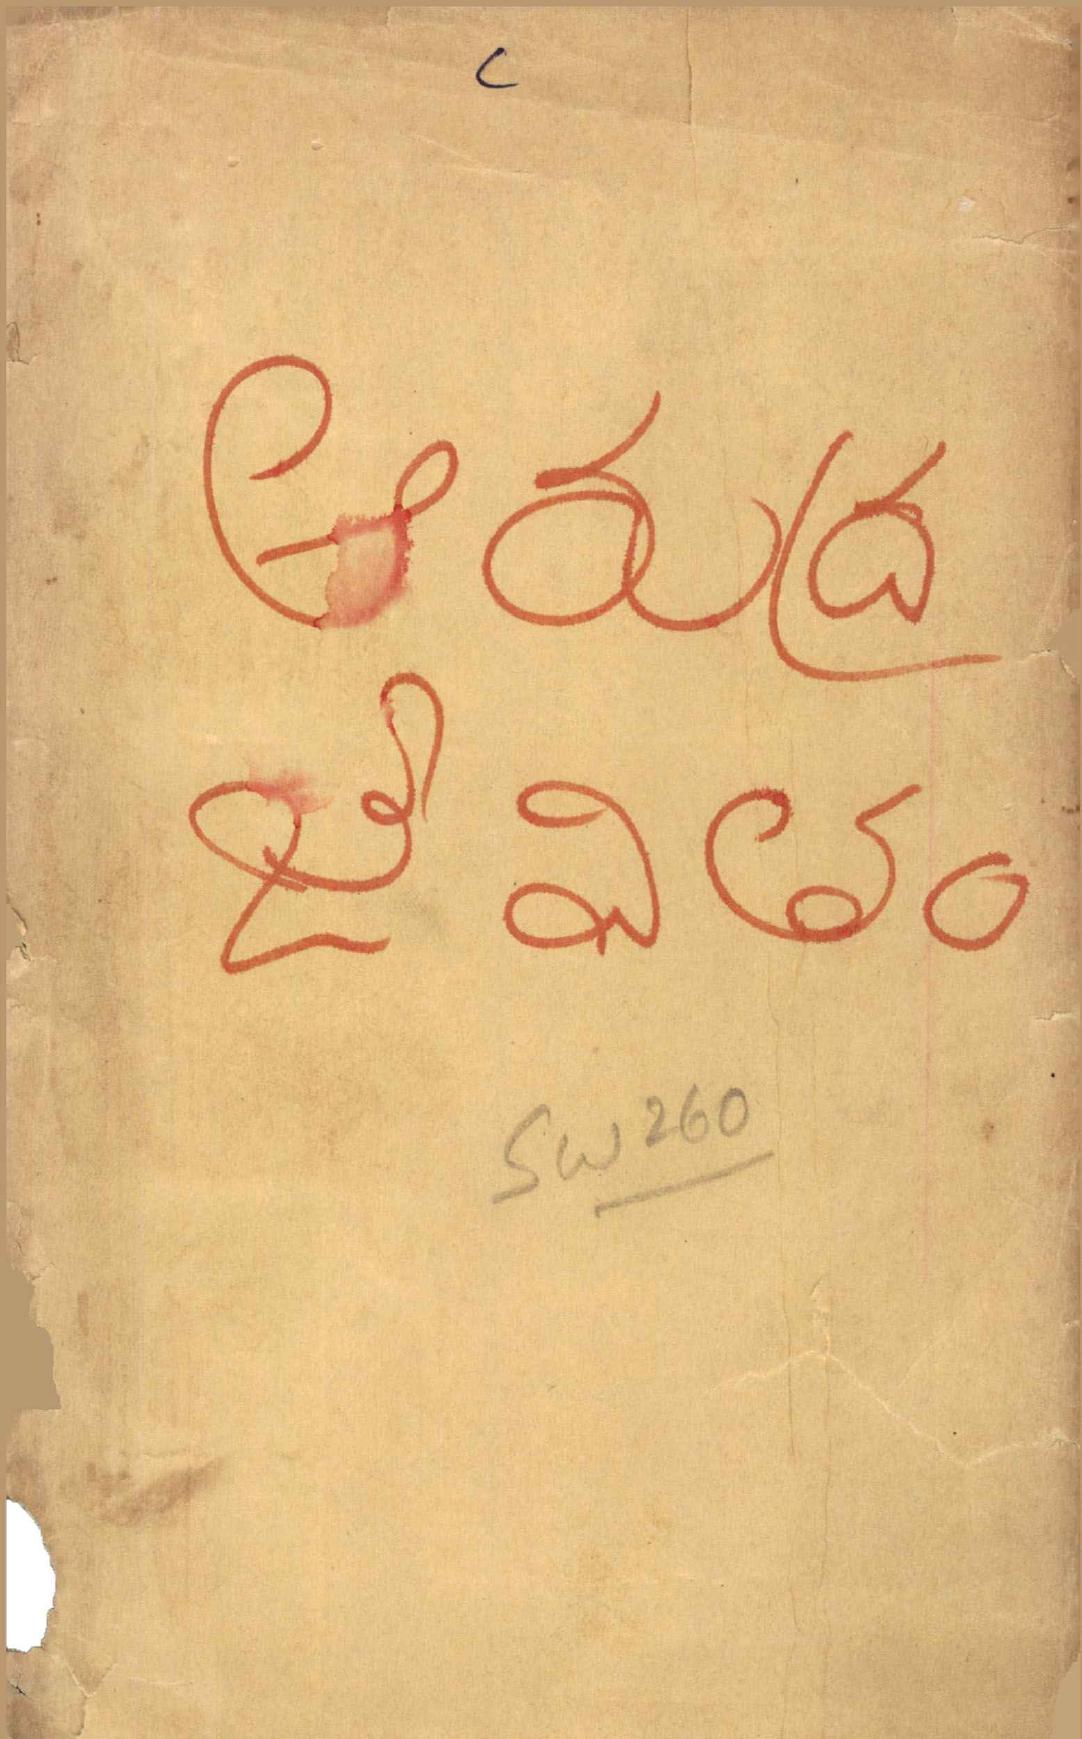 C
ఆరుద్ర
జీవితం
SW 260